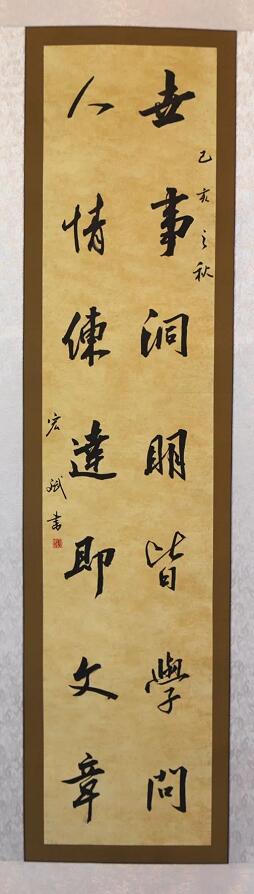 己亥之秋
世事洞明皆學問
人情練達即文章
宏斌書